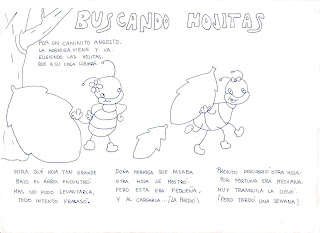 BUSCANDO HOJITAS
POR UN CAMINITO ANGOSTO,
LA HORMIGA VIENE Y VA
ELIGIENDO LAS HOJITAS,
QUE A SU CASA LLEVARÁ.
MIRA QUÉ HOJA TAN GRANDE
BAJO EL ÁRBOL ENCONTRÓ.
MAS NO PUDO LEVANTARLA,
TODO INTENTO FRACASÓ.
DOÑA HORMIGA QUE PASABA
OTRA HOJA LE MOSTRÓ.
PERO ESTA ERA PEQUEÑA,
Y AL CARGARLA...¡LA PERDIÓ!
PRONTO DESCUBRIÓ OTRA HOJA
POR FORTUNA ERA MEDIANA.
MUY TRANQUILA LA LLEVÓ.
¡PERO TARDÓ UNA SEMANA!